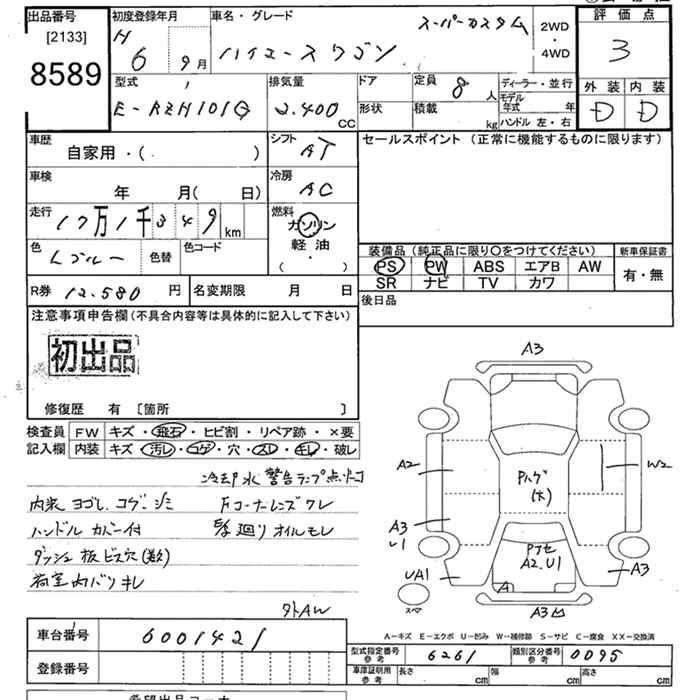 出品番号 初度登録年月 車名・グレード スーパーカスタム 2WD・4WD 評価点
[2133] H 6 9月 ハイエースワゴン 3
8589 型式 排気量 ドア 定員 8人 ディーラー・並行 外装 内装
E-RZH101G 2.400 CC 形状 積載 kg モデル年式 年 D D
ハンドル 左・右
車歴 自家用・( ) シフト AT セールスポイント (正常に機能するものに限ります)
車検 年 月( 日) 冷房 AC
走行 17万1千349km 燃料 ガソリン 軽油 ( ・ )
色 Lブルー 色替 色コード 装備品(純正品に限り○をつけてください) 新車保証書
PS PW ABS エアB AW 有・無
SR ナビ TV カワ
R券 12.580 円 名変期限 月 日 後日品
注意事項申告欄(不具合内容等は具体的に記入して下さい)
初出品
修復歴 有 [箇所 ]
検査員 FW キズ・飛石・ヒビ割・リペア跡・×要
記入欄 内装 キズ・汚レ・コゲ・穴・スレ・キレ・破レ
冷却水警告ランプ点灯
内装ヨゴレ、コゲ、シミ Fコーナーレンズワレ
ハンドルカバー付 廻りオイルモレ
ダッシュ板ビス穴(数)
荷室内バリキレ
外AW
A3
A2
Pハゲ
(大)
W2
A3
U1
A2.U1
UA1
A
A3
スペア
A3
A-キズ E-エクボ U-凹み W-補修跡 S-サビ C-腐食 XX-交換済
車台番号 6001421
型式指定番号 参考 6261 類別区分番号 参考 0095
登録番号 車庫証明用 参考 長さ cm 幅 cm 高さ cm
希望出品コーナー